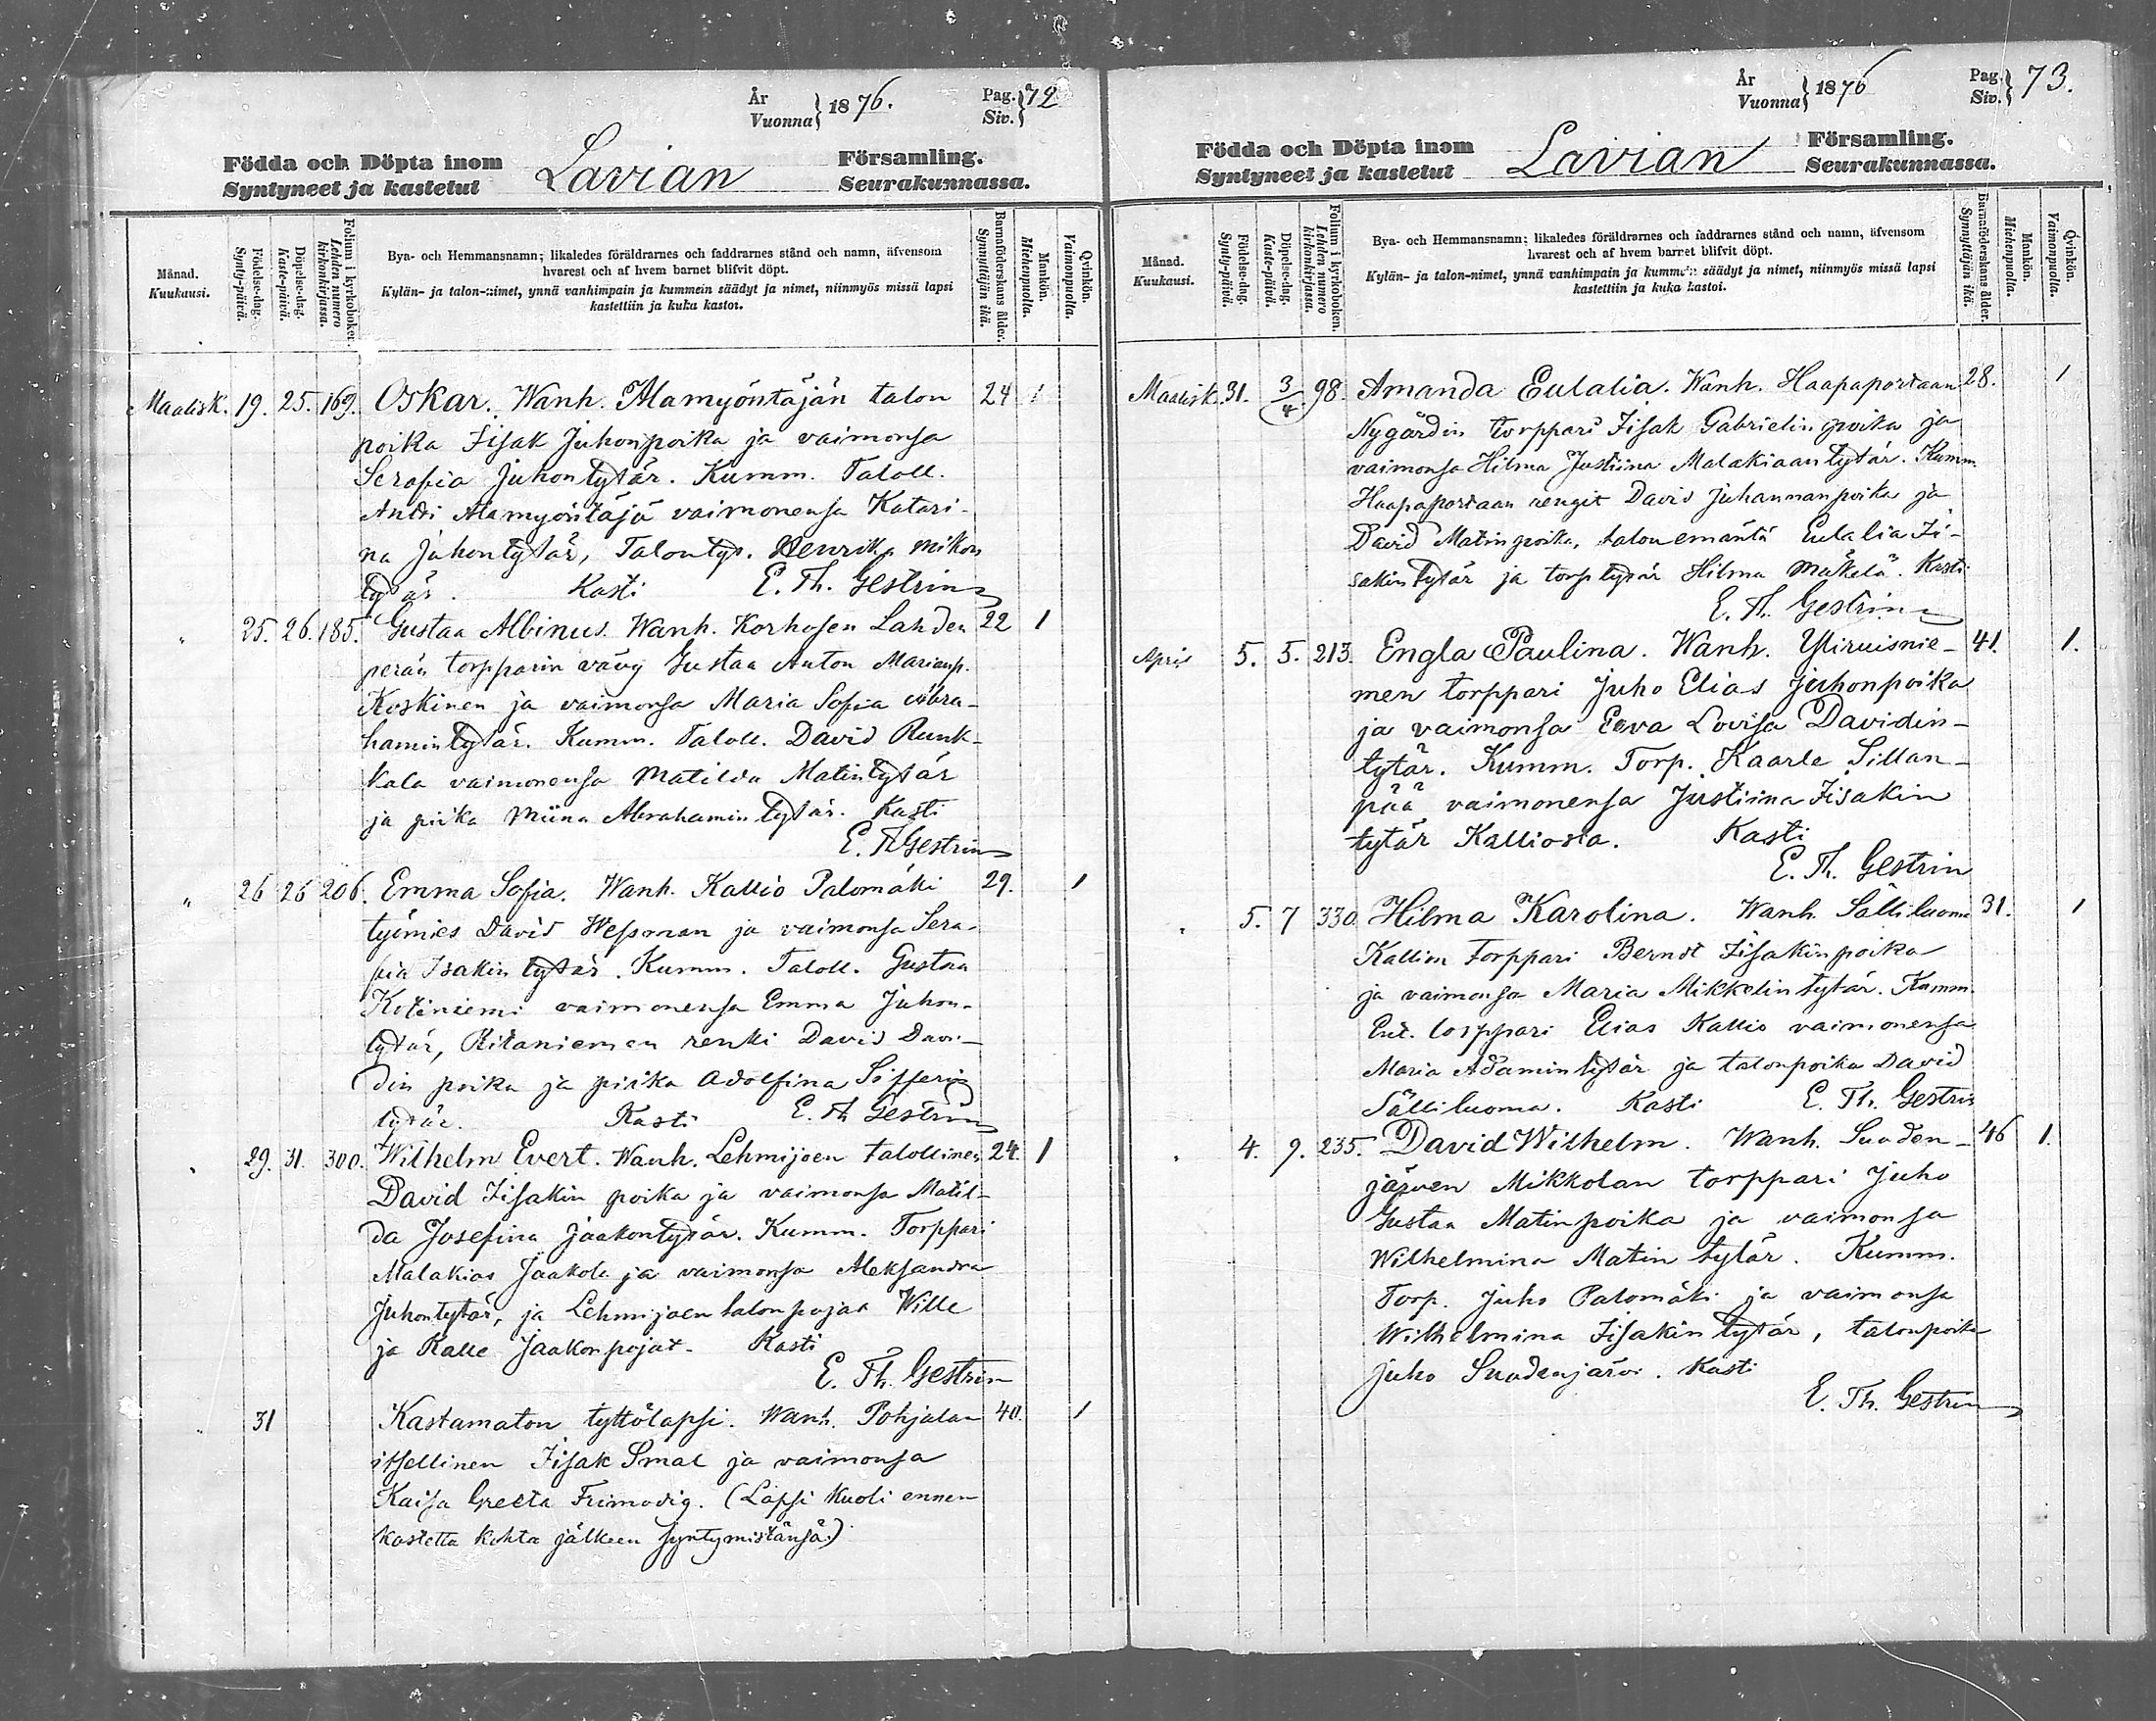 År
Vuonna } 1876.
Pag.
Siv. } 72
Födda och Döpta inom
Syntyneet ja kastetut
Lavian
Församling.
Seurakunnassa.
Månad.
Kuukausi.
Födelse-dag.
Synty-päivä.
Döpelse-dag.
Kaste-päivä.
Folium i kyrkoboken.
Lehden numero
kirkonkirjassa.
Bya- och Hemmansnamn; likaledes föräldrarnes och faddrarnes stånd och namn, äfvensom
hvarest och af hvem barnet blifvit döpt.
Kylän- ja talon-nimet, ynnä vanhimpain ja kummein säädyt ja nimet, niinmyös missä lapsi
kastettiin ja kuka kastoi.
Barnaföderskans ålder.
Synnyttäjän ikä.
Mankön.
Miehenpuolta.
Qvinkön.
Vaimonpuolta.
Maalisk. 19. 25. 169. Oskar. Wanh. Alamyöntäjän talon 24 1
poika Iisak Juhonpoika ja vaimonsa
Serafia Juhontytär. Kumm. Taloll.
Antti Alamyöntäjä vaimonensa Katari-
na Juhontytär, Talontyt. Henrika Mikon
tytär. Kasti E. Th. Gestrin
" 25. 26. 185. Gustaa Albinus. Wanh. Korhosen Lahden 22 1
perän torpparin vävy Gustaa Anton Marianp.
Koskinen ja vaimonsa Maria Sofia Abra-
hamintytär. Kumm. Taloll. David Runk-
kala vaimonensa Matilda Matintytär
ja piika Miina Abrahamintytär. Kasti
E. Th Gestrin
" 26 26 206. Emma Sofia. Wanh. Kallio Palomäki 29. 1
työmies David Wessman ja vaimonsa Sera-
fia Isakintytär. Kumm. Taloll. Gustaa
Kotiniemi vaimonensa Emma Juhon-
tytär, Ritaniemen renki David Davi-
din poika ja piika Adolfina Sifferin
tytär. Kasti E. Th Gestrin
" 29. 31. 300. Wilhelm Evert. Wanh. Lehmijoen talollinen 24. 1
David Iisakin poika ja vaimonsa Matil-
da Josefina Jaakontytär. Kumm. Torppari
Malakias Jaakola ja vaimonsa Aleksandra
Juhontytär, ja Lehmijoen talonpojat Wille
ja Kalle Jaakonpojat. Kasti
E. Th. Gestrin
" 31 Kastamaton tyttölapsi. Wanh. Pohjalan 40. 1
itsellinen Iisak Smal ja vaimonsa
Kaisa Greeta Frimodig. (Lapsi kuoli ennen
kastetta kohta jälkeen syntymistänsä.)
År
Vuonna } 1876
Pag.
Siv. } 73.
Födda och Döpta inom
Syntyneet ja kastetut
Lavian
Församling.
Seurakunnassa.
Månad.
Kuukausi.
Födelse-dag.
Synty-päivä.
Döpelse-dag.
Kaste-päivä.
Folium i kyrkoboken.
Lehden numero
kirkonkirjassa.
Bya- och Hemmansnamn; likaledes föräldrarnes och faddrarnes stånd och namn, äfvensom
hvarest och af hvem barnet blifvit döpt.
Kylän- ja talon-nimet, ynnä vanhimpain ja kummein säädyt ja nimet, niinmyös missä lapsi
kastettiin ja kuka kastoi.
Barnaföderskans ålder.
Synnyttäjän ikä.
Mankön.
Miehenpuolta.
Qvinkön.
Vaimonpuolta.
Maalisk. 31. 3/4. 98. Amanda Eulalia. Wanh. Haapaportaan 28. 1
Nygårdin torppari Iisak Gabrielin poika ja
vaimonsa Hilma Justiina Malakiaantytär. Kumm.
Haapaportaan rengit David Juhannanpoika ja
David Matinpoika, talonemäntä Eulalia Ii-
sakintytär ja torptytär Hilma Mäkelä. Kasti
E. Th. Gestrin
April 5. 5. 213. Engla Paulina. Wanh. Yliruisnie- 41. 1.
men torppari Juho Elias Juhonpoika
ja vaimonsa Eeva Lovisa Davidin-
tytär. Kumm. Torp. Kaarle Sillan-
pää vaimonensa Justiina Iisakin
tytär Kalliosta. Kasti
E. Th. Gestrin
" 5. 7 330. Hilma Karolina. Wanh. Sälliluoma 31. 1
Kallion torppari Berndt Iisakinpoika
ja vaimonsa Maria Mikkelintytär. Kumm.
Ent. torppari Elias Kallio vaimonensa
Maria Adamintytär ja talonpoika David
Sälliluoma. Kasti E. Th. Gestrin
" 4. 9. 235. David Wilhelm. Wanh. Suoden- 46 1.
järven Mikkolan torppari Juho
Gustaa Matinpoika ja vaimonsa
Wilhelmina Matintytär. Kumm.
Torp. Juho Palomäki ja vaimonsa
Wilhelmina Iisakintytär, talonpoika
Juho Suodenjärvi. Kasti
E. Th. Gestrin